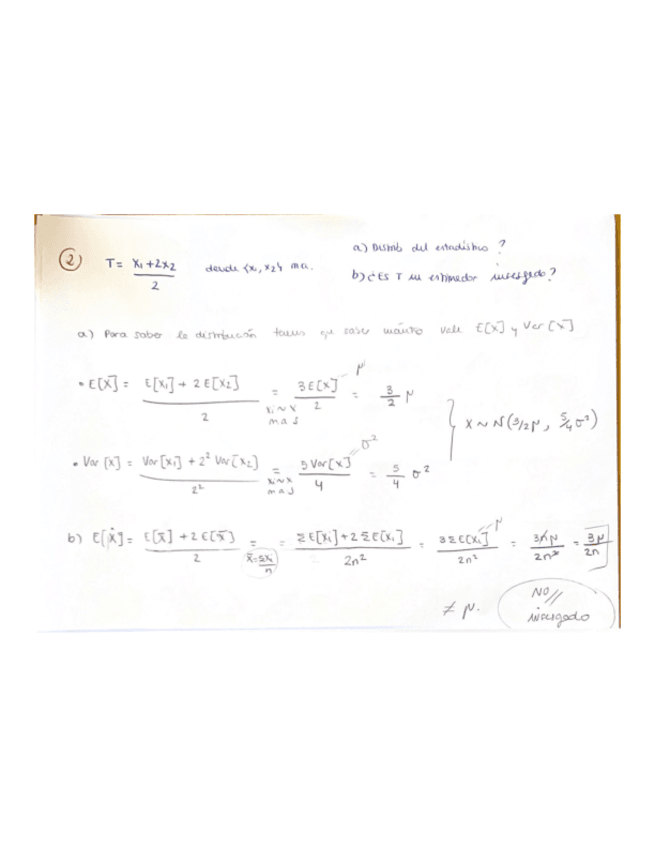 ② T = X₁ + 2X₂ / 2 donde {X₁, X₂} ma.
a) Distrib del estadístico?
b) ¿Es T un estimador insesgado?
a) Para saber la distribución que saber cuánto vale E[X] y Var[X]
• E[X] = E[X₁] + 2E[X₂] / 2 = (Xi ~ X mas) 3E[X] / 2 (μ) = 3/2 μ
• Var[X] = Var[X₁] + 2² Var[X₂] / 2² = (Xi ~ X mas) 5 Var[X] / 4 (σ²) = 5/4 σ²
} X ~ N(3/2 μ, 5/4 σ²)
b) E[X̄] = E[X̄] + 2E[X̄] / 2 = (X̄ = ΣXi / n) = ΣE[Xi] + 2ΣE[Xi] / 2n² = 3ΣE[Xi] / 2n² (μ) = 3nμ / 2n² = 3μ / 2n
≠ μ. NO // insesgado